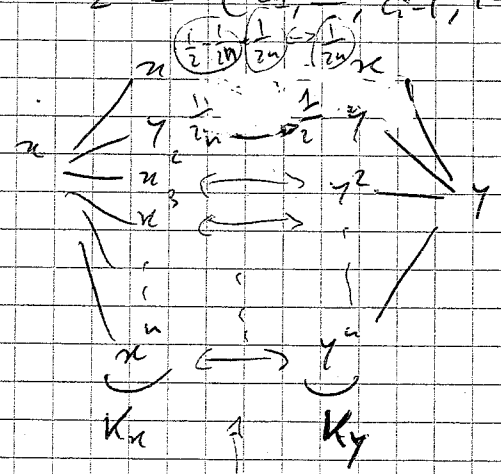 x 1/2 - 1/2n 1/2n <-> 1/2n x
y 1/2n → 1/2 y
x x² ↔ y² y
x³ ↔
xⁿ ↔ yⁿ
Kx 1 Ky